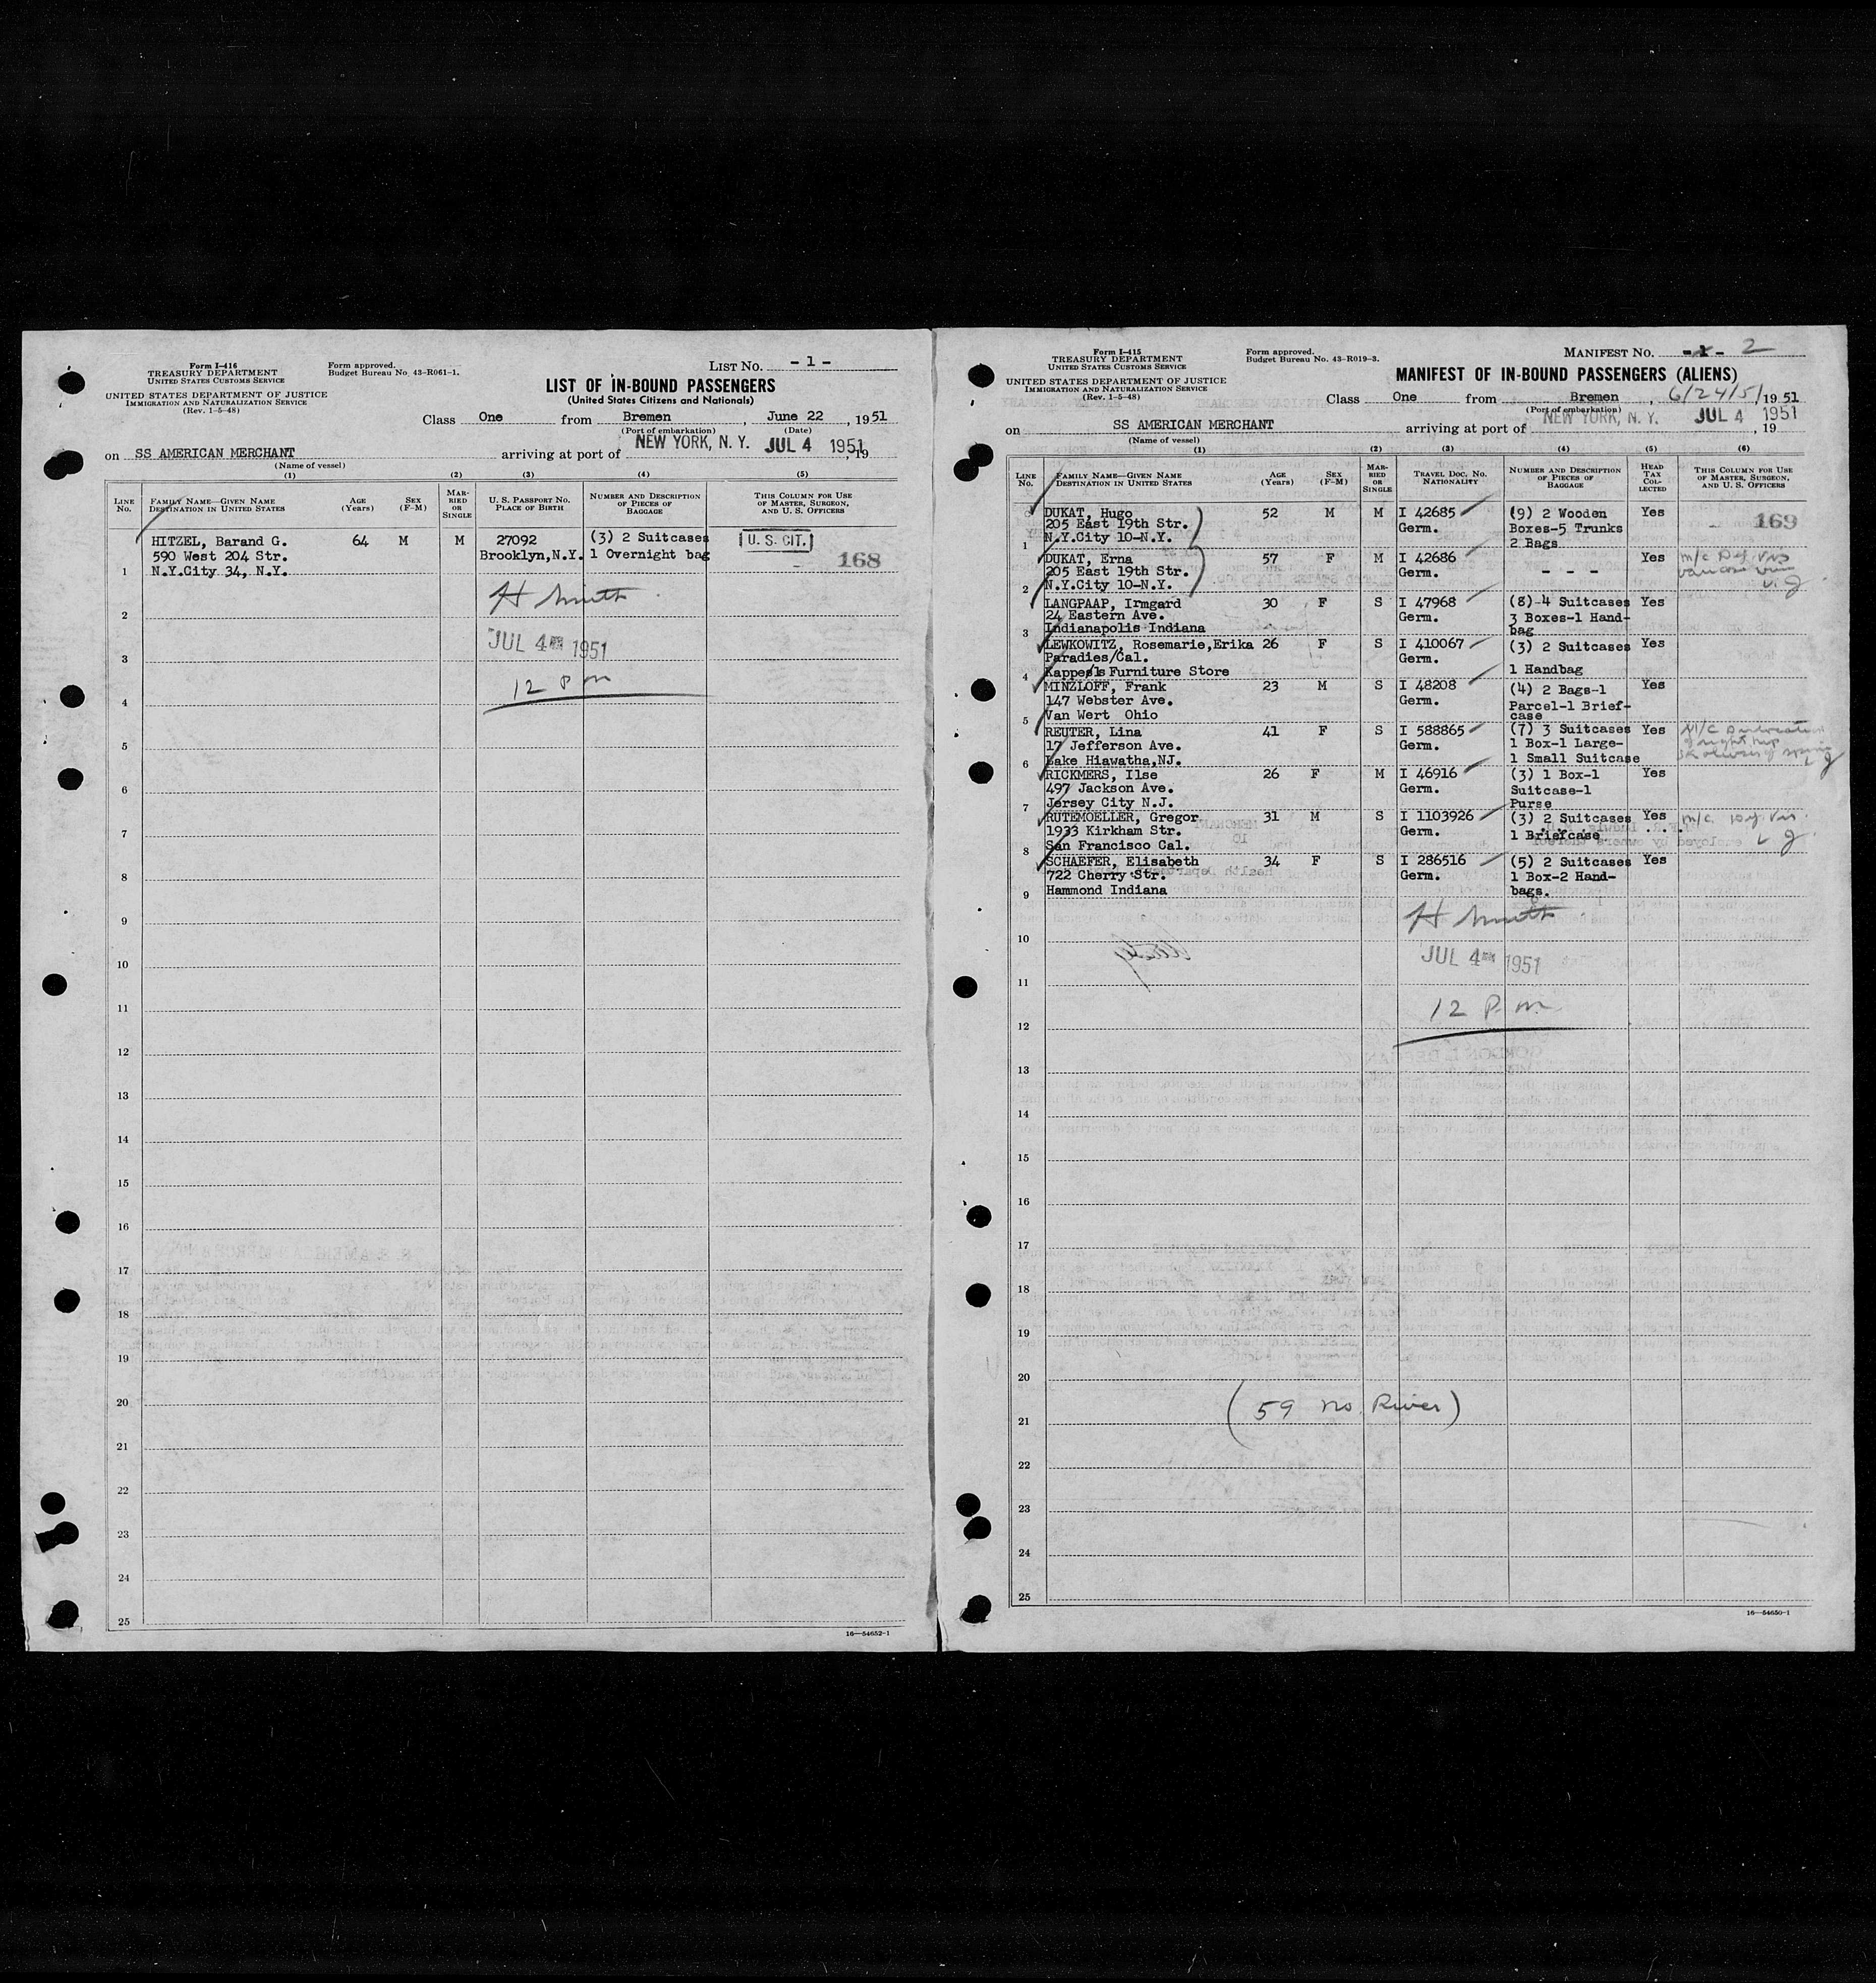 Form I-416
TREASURY DEPARTMENT
UNITED STATES CUSTOMS SERVICE
UNITED STATES DEPARTMENT OF JUSTICE
IMMIGRATION AND NATURALIZATION SERVICE
(Rev. 1-5-48)
Form approved.
Budget Bureau No. 43-R061-1.
LIST NO. -1-
LIST OF IN-BOUND PASSENGERS
(United States Citizens and Nationals)
Class One from Bremen, June 22, 1951
(Port of embarkation) (Date)
on SS AMERICAN MERCHANT arriving at port of NEW YORK, N. Y. JUL 4 1951, 19
(Name of vessel)
(1) (2) (3) (4) (5)
LINE No. FAMILY NAME—GIVEN NAME DESTINATION IN UNITED STATES AGE (Years) SEX (F-M) MARRIED OR SINGLE U. S. PASSPORT NO. PLACE OF BIRTH NUMBER AND DESCRIPTION OF PIECES OF BAGGAGE THIS COLUMN FOR USE OF MASTER, SURGEON, AND U. S. OFFICERS
HITZEL, Barand G. 64 M M 27092 (3) 2 Suitcases U. S. CIT.
590 West 204 Str. Brooklyn,N.Y. 1 Overnight bag 168
1 N.Y.City 34, N.Y.
H Smith
2
JUL 4 1951
3
12 P m
4
5
6
7
8
9
10
11
12
13
14
15
16
17
18
19
20
21
22
23
24
25
16—54652-1
Form I-415
TREASURY DEPARTMENT
UNITED STATES CUSTOMS SERVICE
UNITED STATES DEPARTMENT OF JUSTICE
IMMIGRATION AND NATURALIZATION SERVICE
(Rev. 1-5-48)
Form approved.
Budget Bureau No. 43-R019-3.
MANIFEST NO. -1- 2
MANIFEST OF IN-BOUND PASSENGERS (ALIENS)
Class One from Bremen, 6/24/51 1951
(Port of embarkation)
on SS AMERICAN MERCHANT arriving at port of NEW YORK, N. Y. JUL 4 1951, 19
(Name of vessel)
(1) (2) (3) (4) (5) (6)
LINE No. FAMILY NAME—GIVEN NAME DESTINATION IN UNITED STATES AGE (Years) SEX (F-M) MARRIED OR SINGLE TRAVEL DOC. NO. NATIONALITY NUMBER AND DESCRIPTION OF PIECES OF BAGGAGE HEAD TAX COLLECTED THIS COLUMN FOR USE OF MASTER, SURGEON, AND U. S. OFFICERS
DUKAT, Hugo 52 M M I 42685 (9) 2 Wooden Yes
205 East 19th Str. Germ. Boxes-5 Trunks 169
1 N.Y.City 10-N.Y. 2 Bags
DUKAT, Erna 57 F M I 42686 Yes m/c Def. Vis
205 East 19th Str. Germ. - - -
2 N.Y.City 10-N.Y.
LANGPAAP, Irmgard 30 F S I 47968 (8) 4 Suitcases Yes
24 Eastern Ave. Germ. 3 Boxes-1 Hand-
3 Indianapolis Indiana bag
LEWKOWITZ, Rosemarie,Erika 26 F S I 410067 (3) 2 Suitcases Yes
Paradies/Cal. Germ.
4 Kappels Furniture Store 1 Handbag
MINZLOFF, Frank 23 M S I 48208 (4) 2 Bags-1 Yes
147 Webster Ave. Germ. Parcel-1 Brief-
5 Van Wert Ohio case
REUTER, Lina 41 F S I 588865 (7) 3 Suitcases Yes
17 Jefferson Ave. Germ. 1 Box-1 Large-
6 Lake Hiawatha,NJ. 1 Small Suitcase
RICKMERS, Ilse 26 F M I 46916 (3) 1 Box-1 Yes
497 Jackson Ave. Germ. Suitcase-1
7 Jersey City N.J. Purse
RUTEMOELLER, Gregor 31 M S I 1103926 (3) 2 Suitcases Yes m/c. Def. Vis.
1933 Kirkham Str. Germ. 1 Briefcase
8 San Francisco Cal.
SCHAEFER, Elisabeth 34 F S I 286516 (5) 2 Suitcases Yes
722 Cherry Str. Germ. 1 Box-2 Hand-
9 Hammond Indiana bags.
H Smith
10
JUL 4 1951
11
12 P. m
12
13
14
15
16
17
18
19
20
(59 no. River)
21
22
23
24
25
16—54650-1